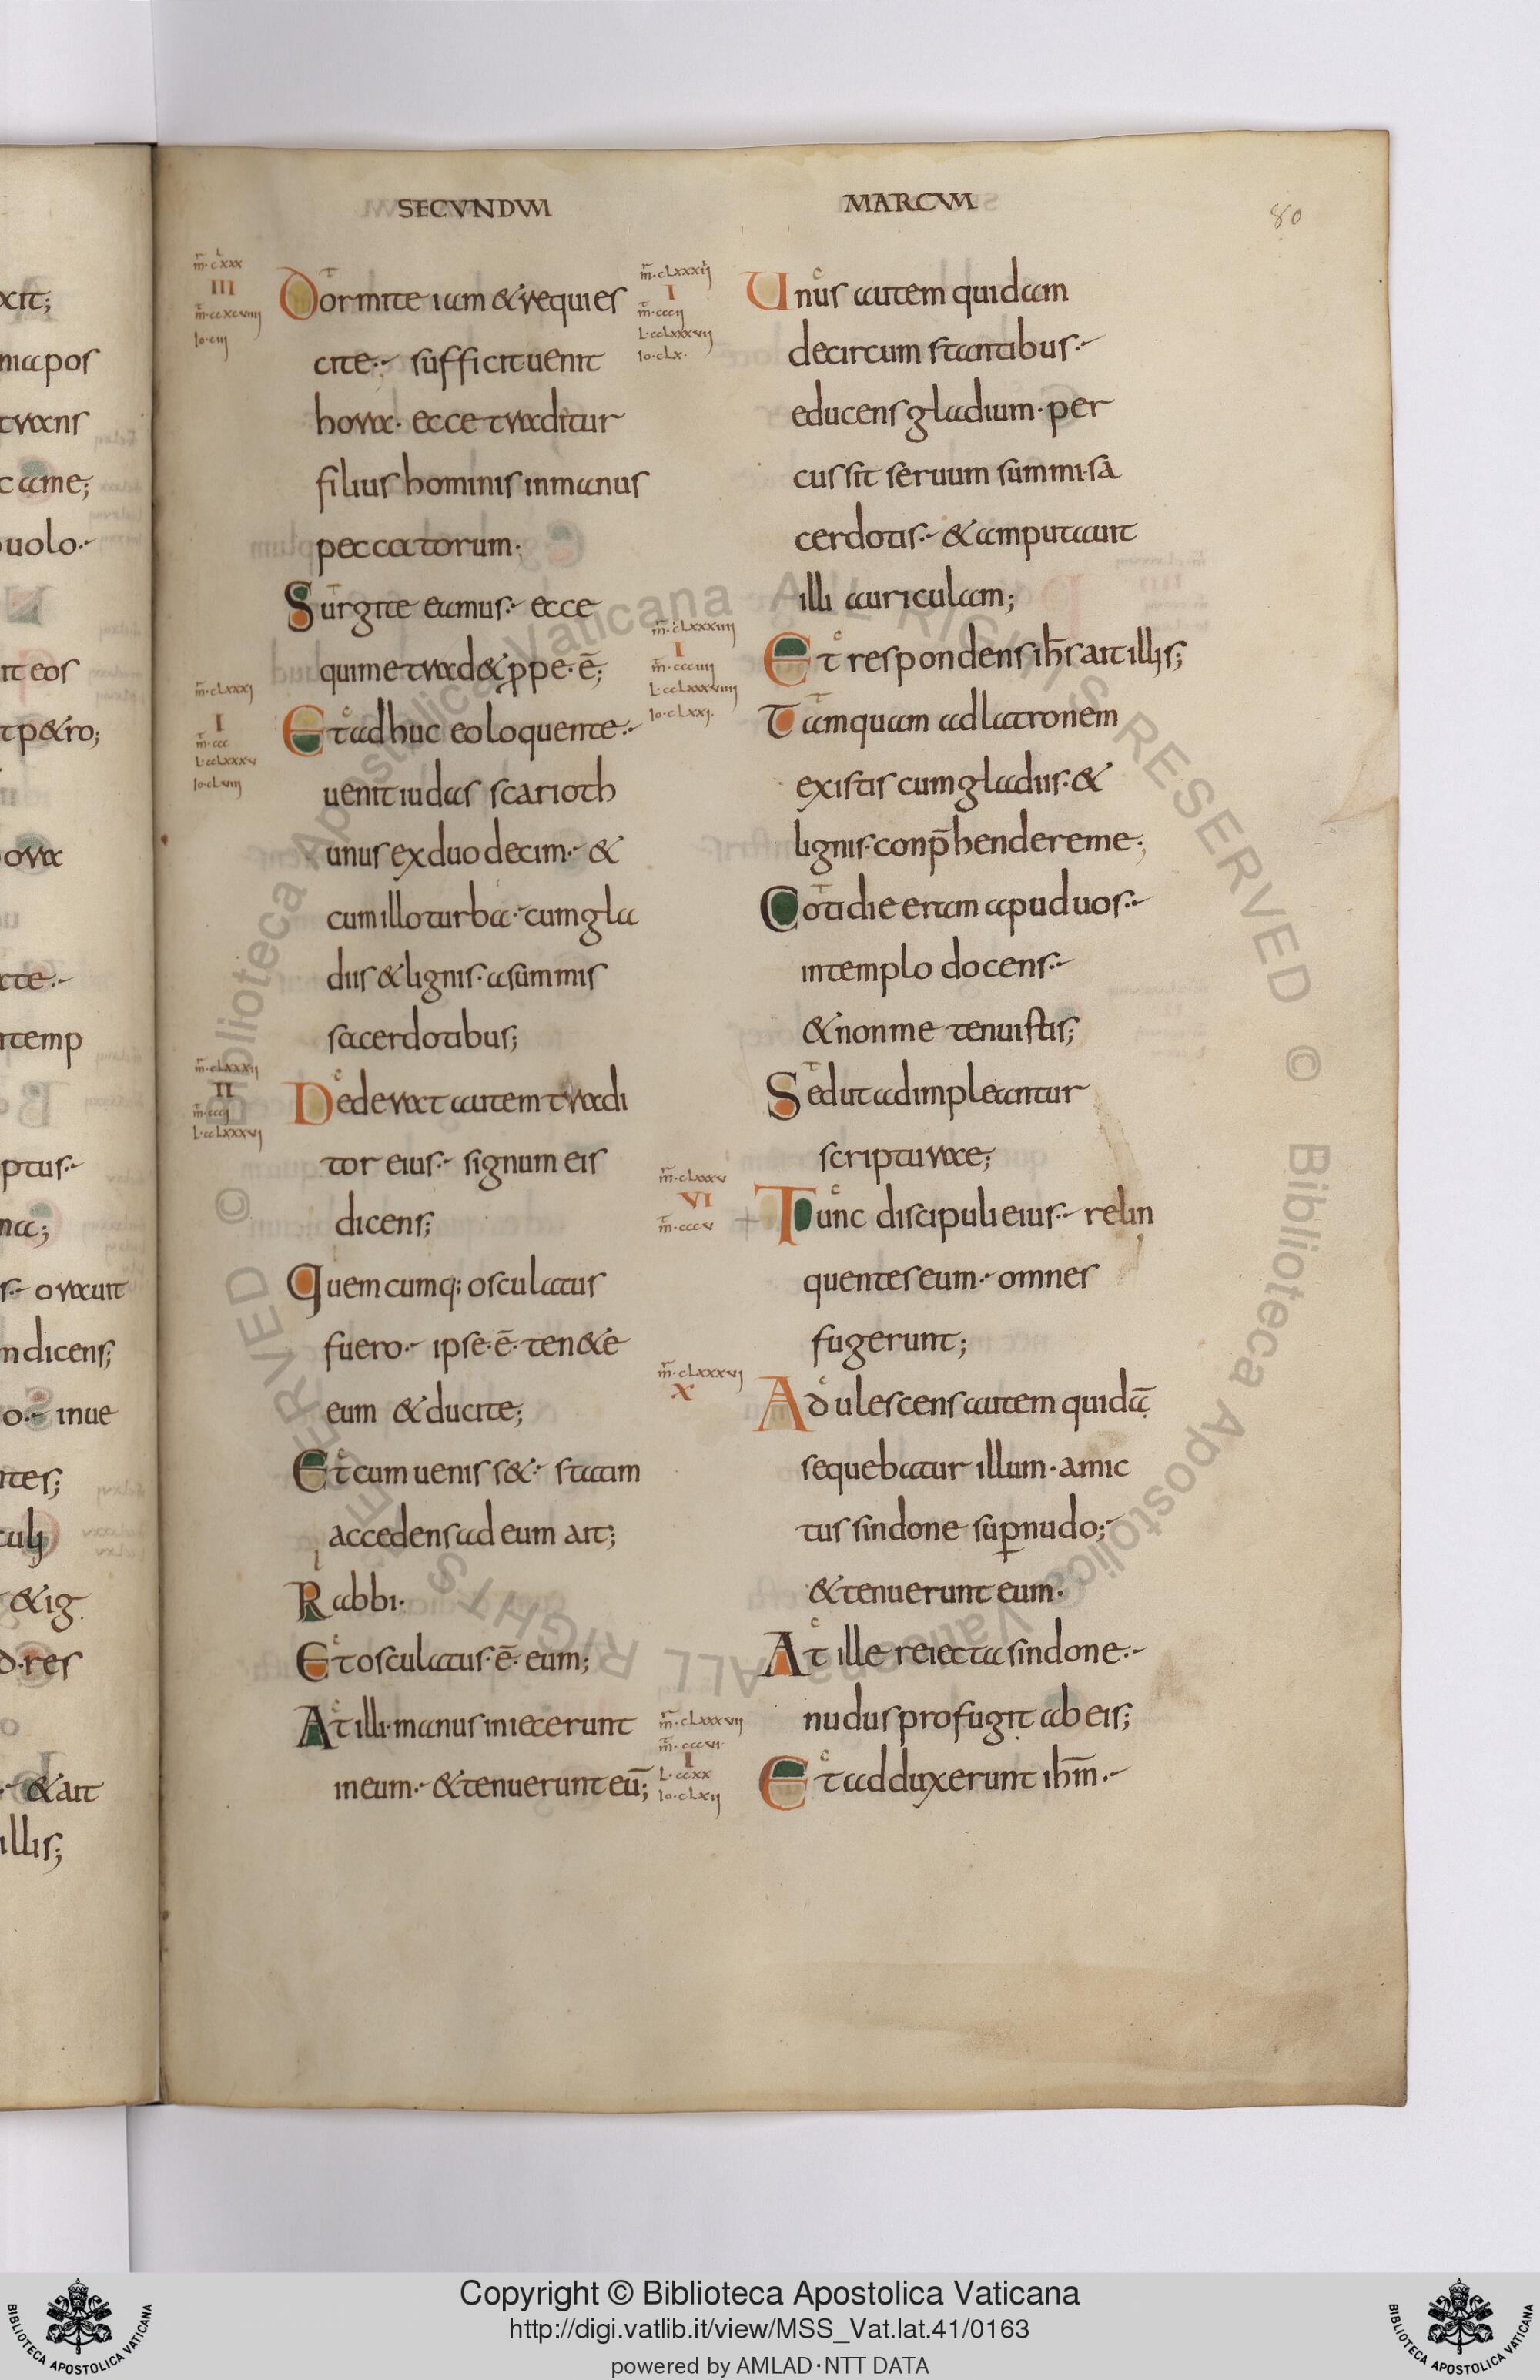 SECVNDVM
MARCVM
80
m̄·clxxx
III
m̄·ccxcviiij
Io·ciij
Dormite iam & requies
cite·, sufficit uenit
hora· ecce traditur
filius hominis in manus
peccatorum·
Surgite eamus·, ecce
qui me trad& ꝓpe·ē;
m̄·clxxxj
I
m̄·ccc
L·cclxxxv
Io·clviij
Et adhuc eo loquente·,
uenit iudas scarioth
unus ex duodecim·, &
cum illo turba·, cum gla
diis & lignis· a summis
sacerdotibus;
m̄·clxxxij
II
m̄·cccj
L·cclxxxvj
Dederat autem tradi
tor eius·, signum eis
dicens;
Quemcumq; osculatus
fuero·, ipse·ē· ten&e
eum & ducite;
Et cum uenis s&·, statim
accedens ad eum ait;
Rabbi·
Et osculatus·ē· eum;
At illi· manus iniecerunt
in eum·, & tenuerunt eū;
m̄·clxxxiij
I
m̄·cccij
L·cclxxxvij
Io·clx·
Unus autem quidam
de circum stantibus·,
educens gladium· per
cussit seruum summi· sa
cerdotis·, & amputauit
illi auriculam;
m̄·clxxxiiij
I
m̄·ccciiij
L·cclxxxviiij
Io·clxxj·
Et respondens ih̄s ait illis;
Tamquam ad latronem
existis cum gladiis· &
lignis· conp̄hendere me;
Cotidie eram apud uos·,
in templo docens·,
& non me tenuistis;
Sed ut adimpleantur
scripturae;
m̄·clxxxv
VI
m̄·cccv
Tunc discipuli eius·, relin
quentes eum·, omnes
fugerunt;
m̄·clxxxvj
X
Adulescens autem quidā
sequebatur illum· amic
tus sindone suꝑ nudo;
& tenuerunt eum·
At ille reiecta sindone·,
nudus profugit ab eis;
m̄·clxxxvij
m̄·cccvi
I
L·ccxx
Io·clxij
Et adduxerunt ih̄m·,
Copyright © Biblioteca Apostolica Vaticana
http://digi.vatlib.it/view/MSS_Vat.lat.41/0163
powered by AMLAD·NTT DATA